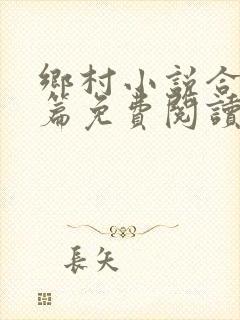 鄉村小說合
篇免費閱讀
長矢